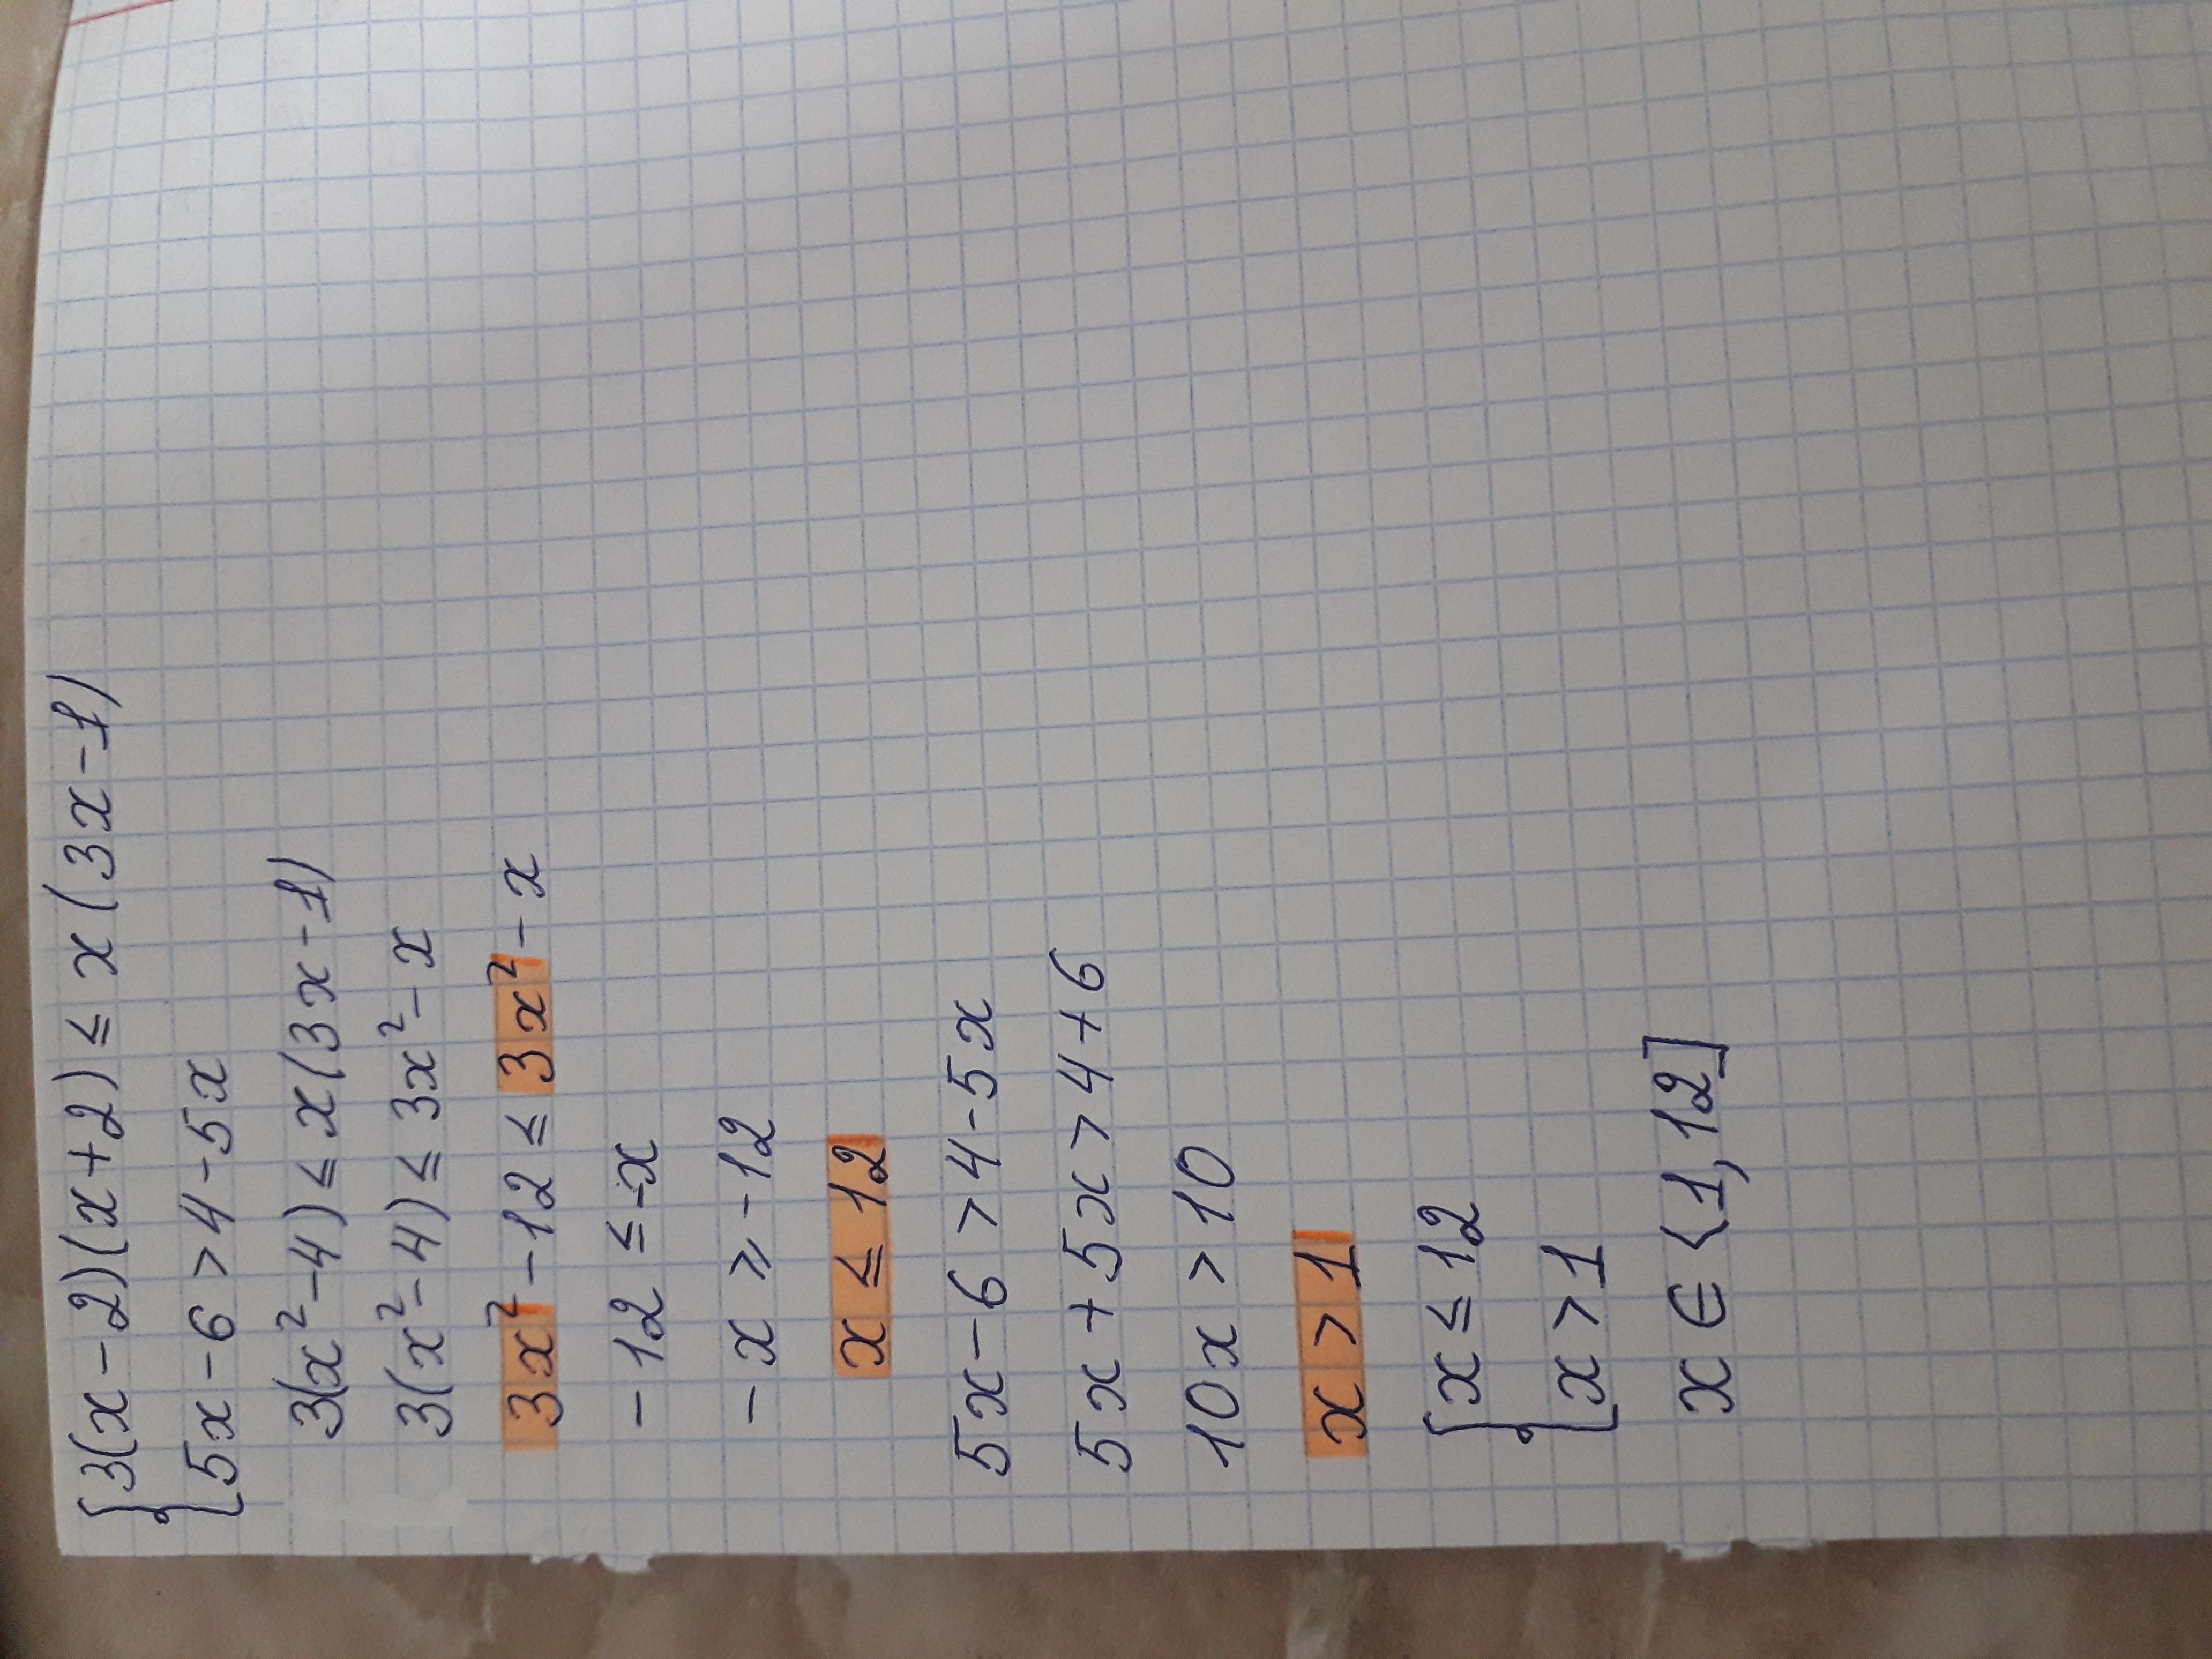 {3(x-2)(x+2)≤x(3x-1)
{5x-6>4-5x
3(x²-4)≤x(3x-1)
3(x²-4)≤3x²-x
3x²-12≤3x²-x
-12≤-x
-x⩾-12
x≤12
5x-6>4-5x
5x+5x>4+6
10x>10
x>1
{x≤12
{x>1
x∈⟨1,12]